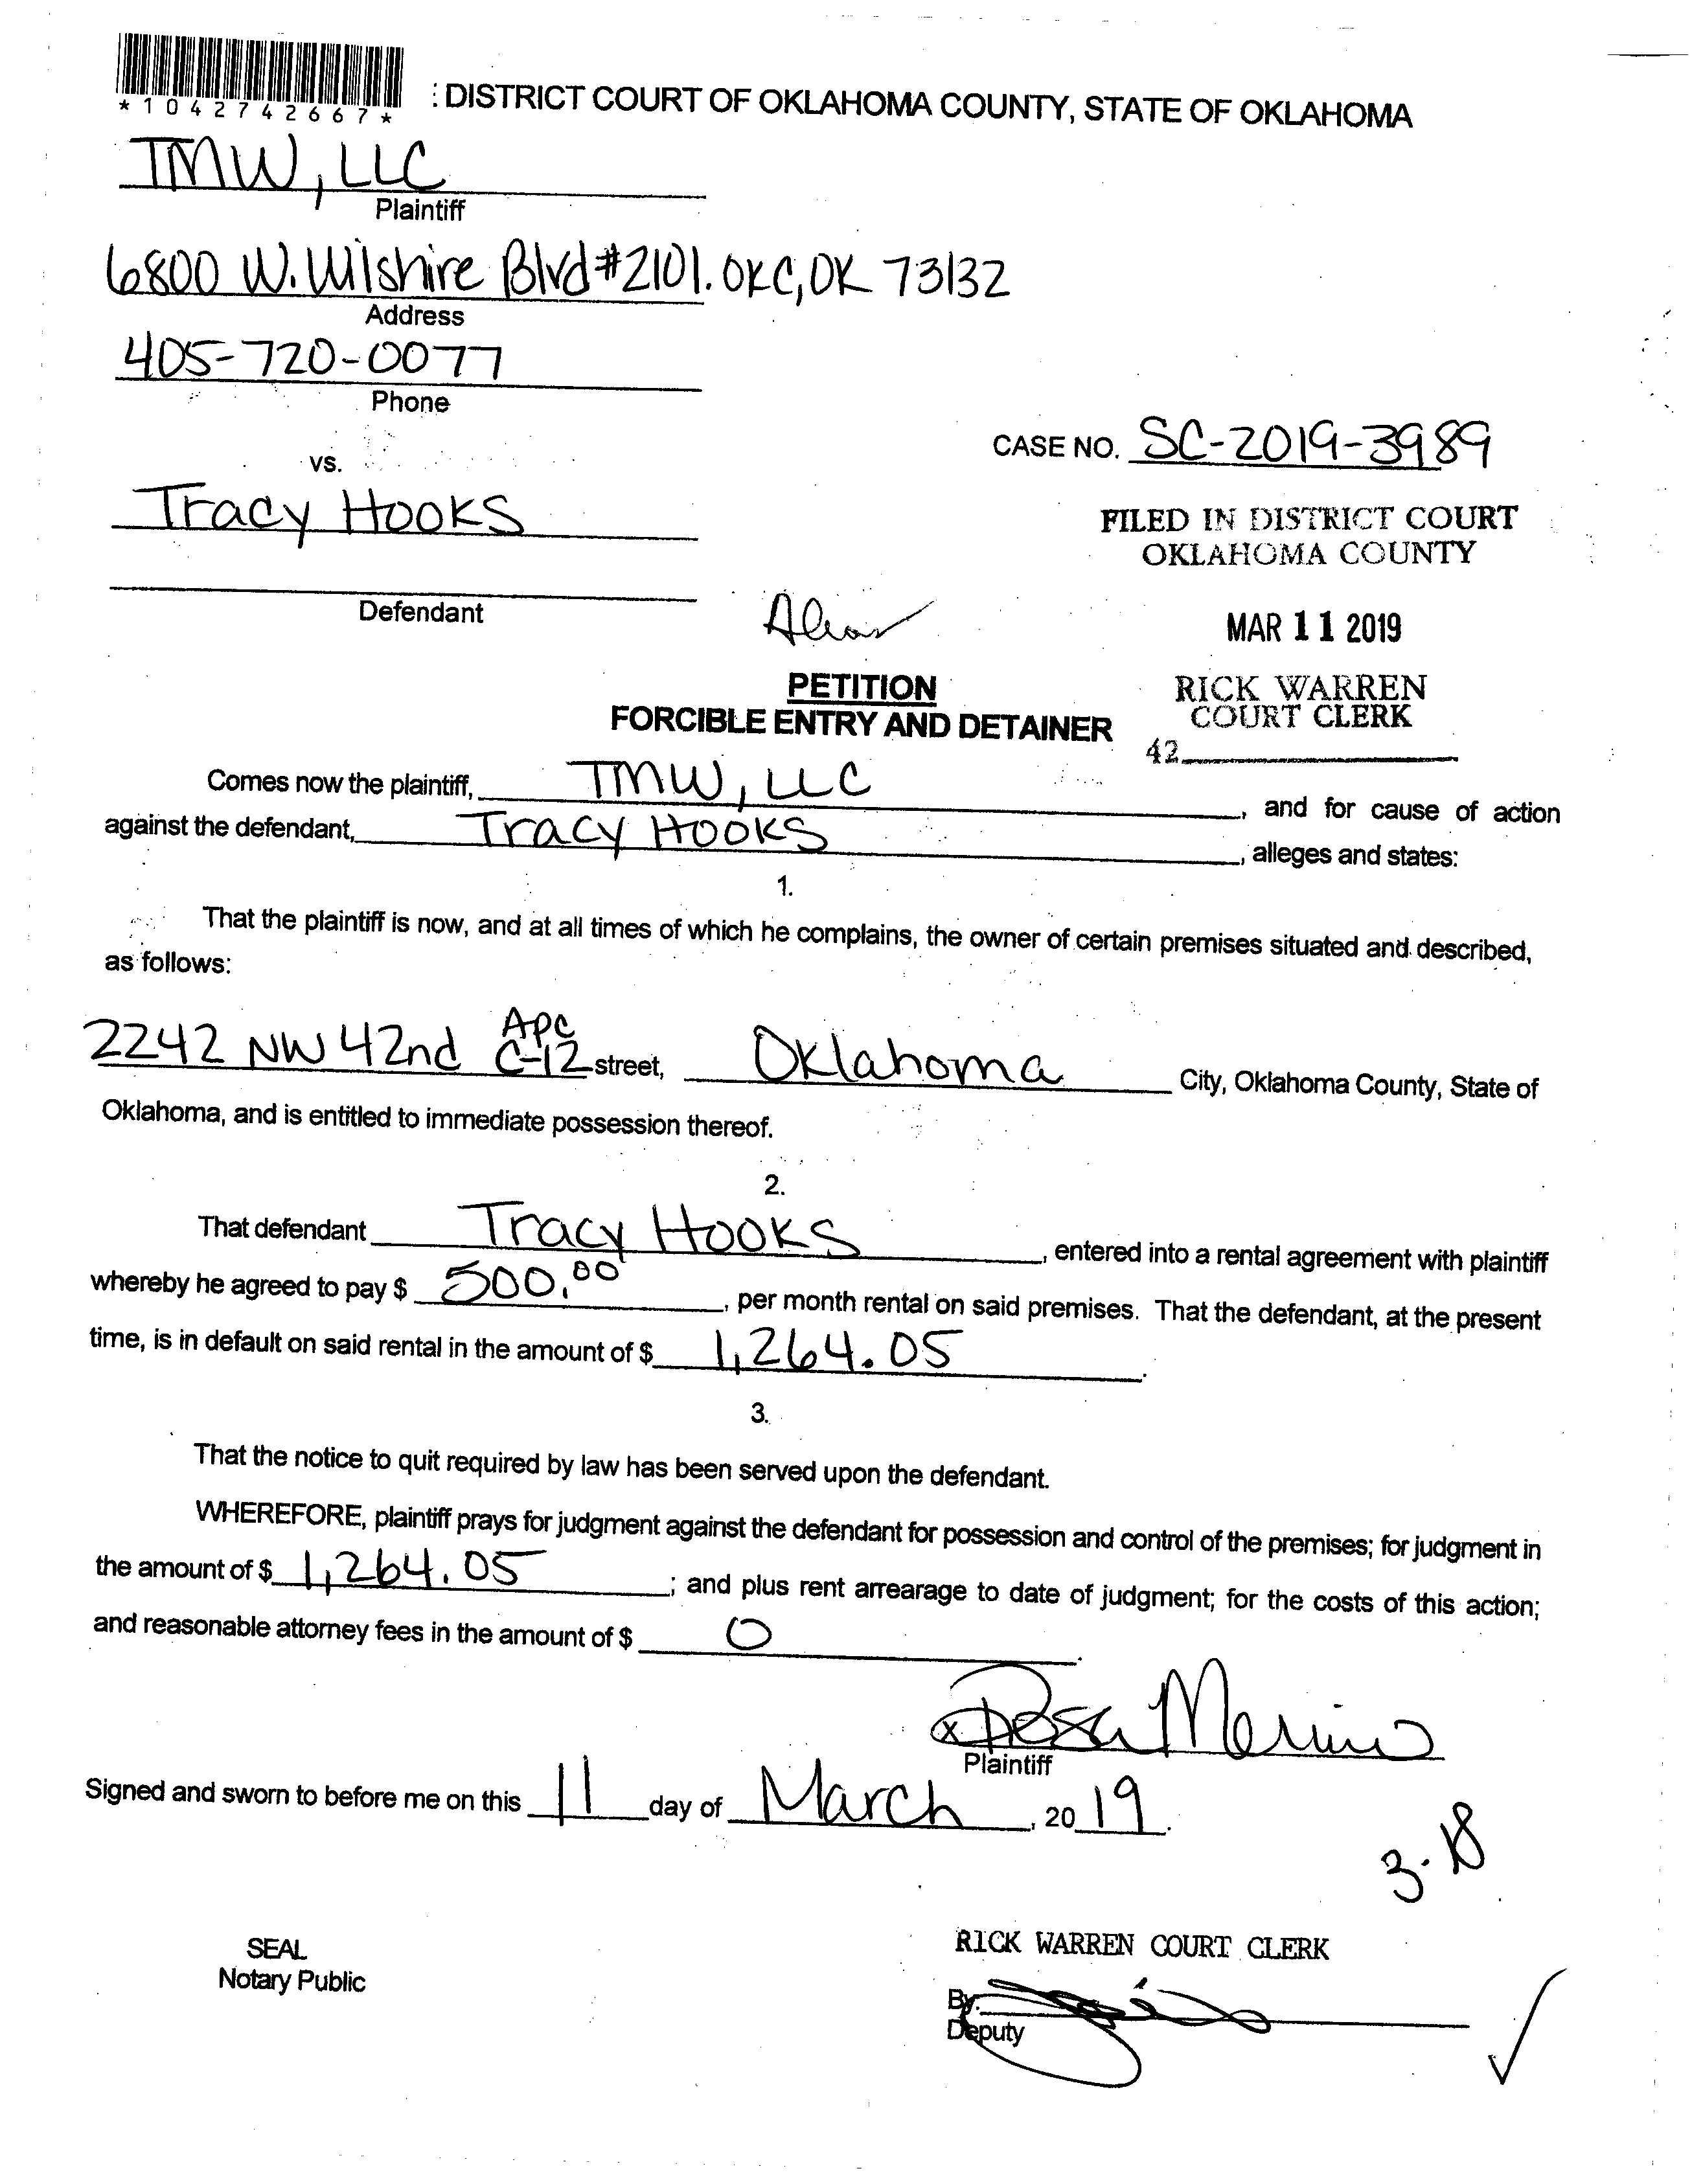 *1042742667*
: DISTRICT COURT OF OKLAHOMA COUNTY, STATE OF OKLAHOMA
TMW, LLC
Plaintiff
6800 W. Wilshire Blvd #2101. OKC, OK 73132
Address
405-720-0077
Phone
CASE NO. SC-2019-3989
vs.
Tracy Hooks
FILED IN DISTRICT COURT
OKLAHOMA COUNTY
Defendant
MAR 11 2019
PETITION
FORCIBLE ENTRY AND DETAINER
RICK WARREN
COURT CLERK
42
Comes now the plaintiff, TMW, LLC, and for cause of action
against the defendant, Tracy Hooks, alleges and states:
1.
That the plaintiff is now, and at all times of which he complains, the owner of certain premises situated and described,
as follows:
2242 NW 42nd C-12 street, Oklahoma City, Oklahoma County, State of
Oklahoma, and is entitled to immediate possession thereof.
2.
That defendant Tracy Hooks, entered into a rental agreement with plaintiff
whereby he agreed to pay $ 500.00, per month rental on said premises. That the defendant, at the present
time, is in default on said rental in the amount of $ 1,264.05.
3.
That the notice to quit required by law has been served upon the defendant.
WHEREFORE, plaintiff prays for judgment against the defendant for possession and control of the premises; for judgment in
the amount of $ 1,264.05; and plus rent arrearage to date of judgment; for the costs of this action;
and reasonable attorney fees in the amount of $ 0.
x Merino
Plaintiff
Signed and sworn to before me on this 11 day of March, 2019.
3-18
SEAL
Notary Public
RICK WARREN COURT CLERK
By:
Deputy